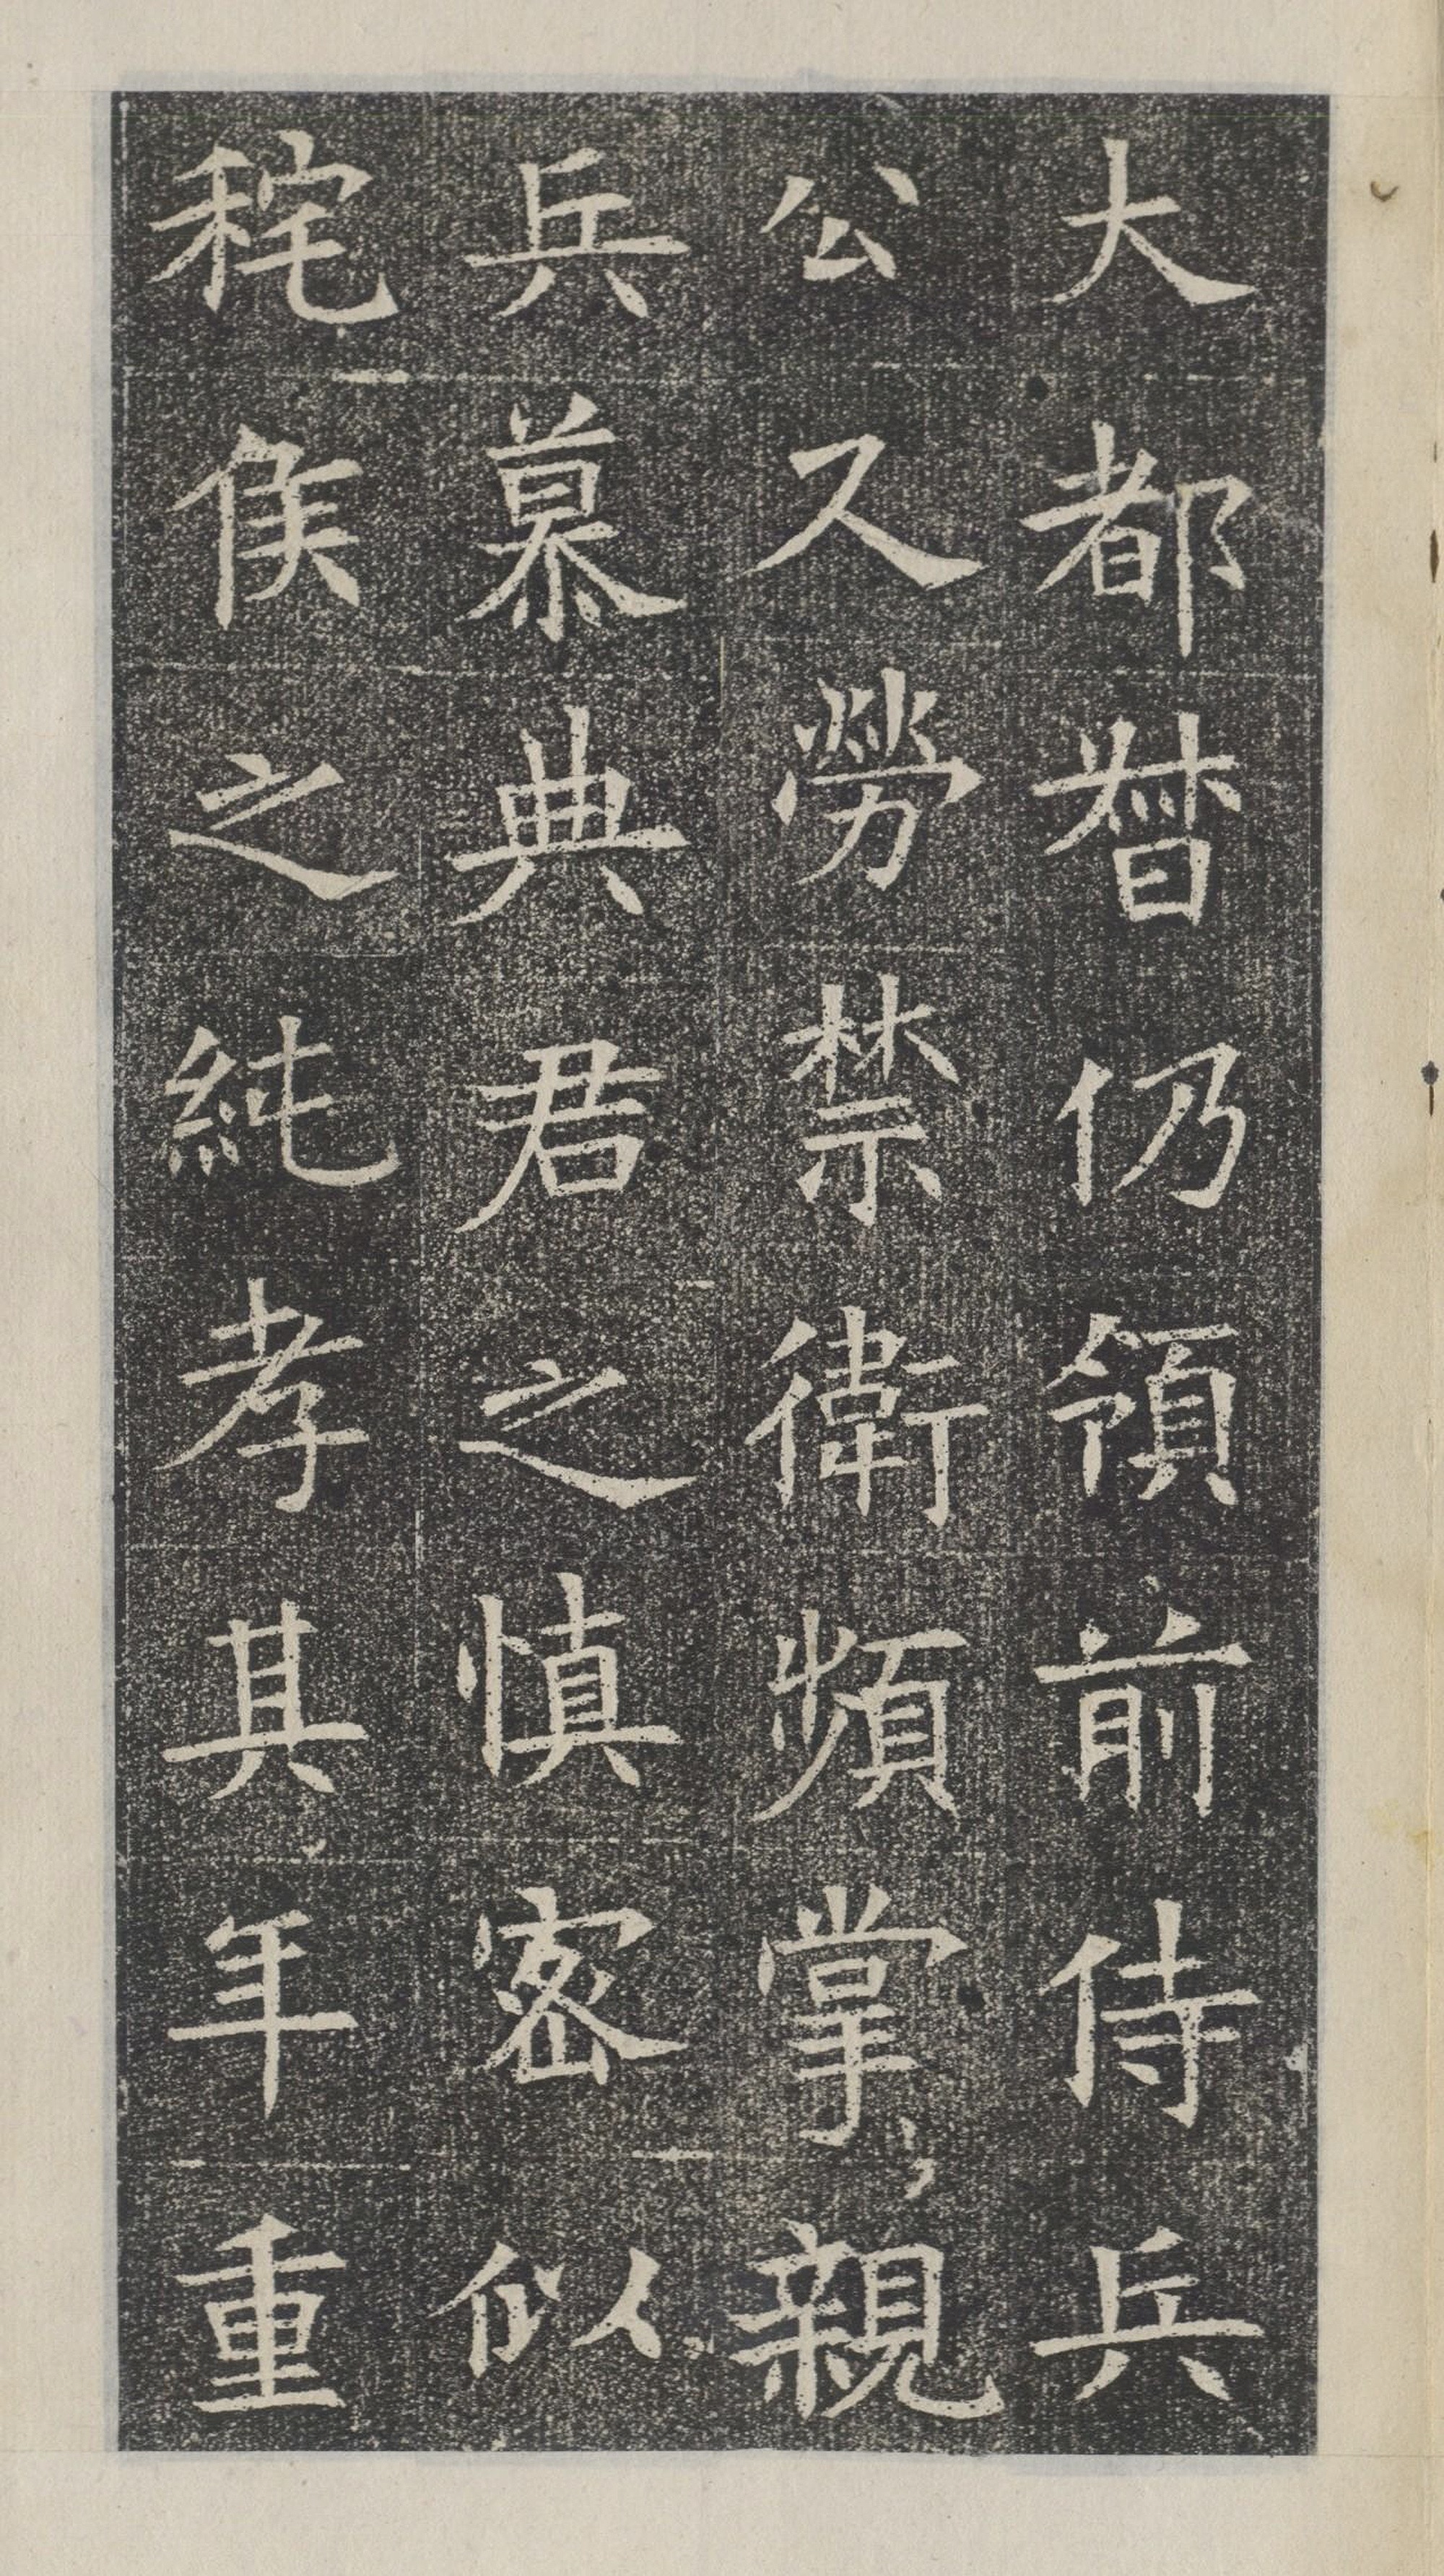 大都督仍領前侍兵
公久勞禁衛頻掌親
兵慕典君之慎密似
秺侯之純孝其年重